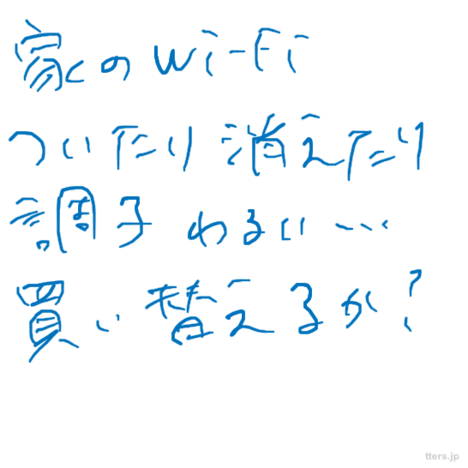 家のWi-Fi
ついたり消えたり
調子わるい…
買い替えるか?
tters.jp